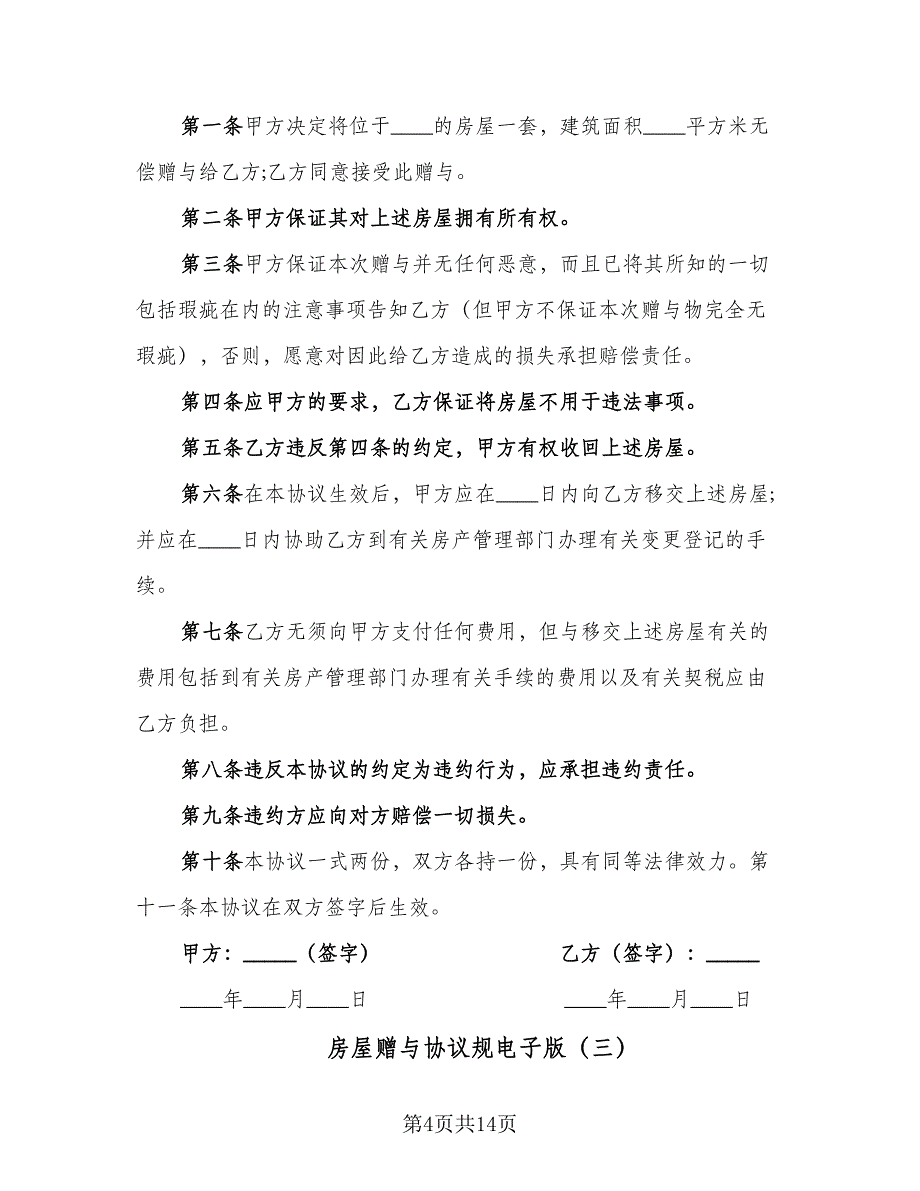 第一条甲方决定将位于____的房屋一套，建筑面积____平方米无
偿赠与给乙方;乙方同意接受此赠与。
第二条甲方保证其对上述房屋拥有所有权。
第三条甲方保证本次赠与并无任何恶意，而且已将其所知的一切
包括瑕疵在内的注意事项告知乙方（但甲方不保证本次赠与物完全无
瑕疵），否则，愿意对因此给乙方造成的损失承担赔偿责任。
第四条应甲方的要求，乙方保证将房屋不用于违法事项。
第五条乙方违反第四条的约定，甲方有权收回上述房屋。
第六条在本协议生效后，甲方应在____日内向乙方移交上述房屋;
并应在____日内协助乙方到有关房产管理部门办理有关变更登记的手
续。
第七条乙方无须向甲方支付任何费用，但与移交上述房屋有关的
费用包括到有关房产管理部门办理有关手续的费用以及有关契税应由
乙方负担。
第八条违反本协议的约定为违约行为，应承担违约责任。
第九条违约方应向对方赔偿一切损失。
第十条本协议一式两份，双方各持一份，具有同等法律效力。第
十一条本协议在双方签字后生效。
甲方：_____（签字） 乙方（签字）：_____
____年____月____日 ____年____月____日
房屋赠与协议规电子版（三）
第4页共14页